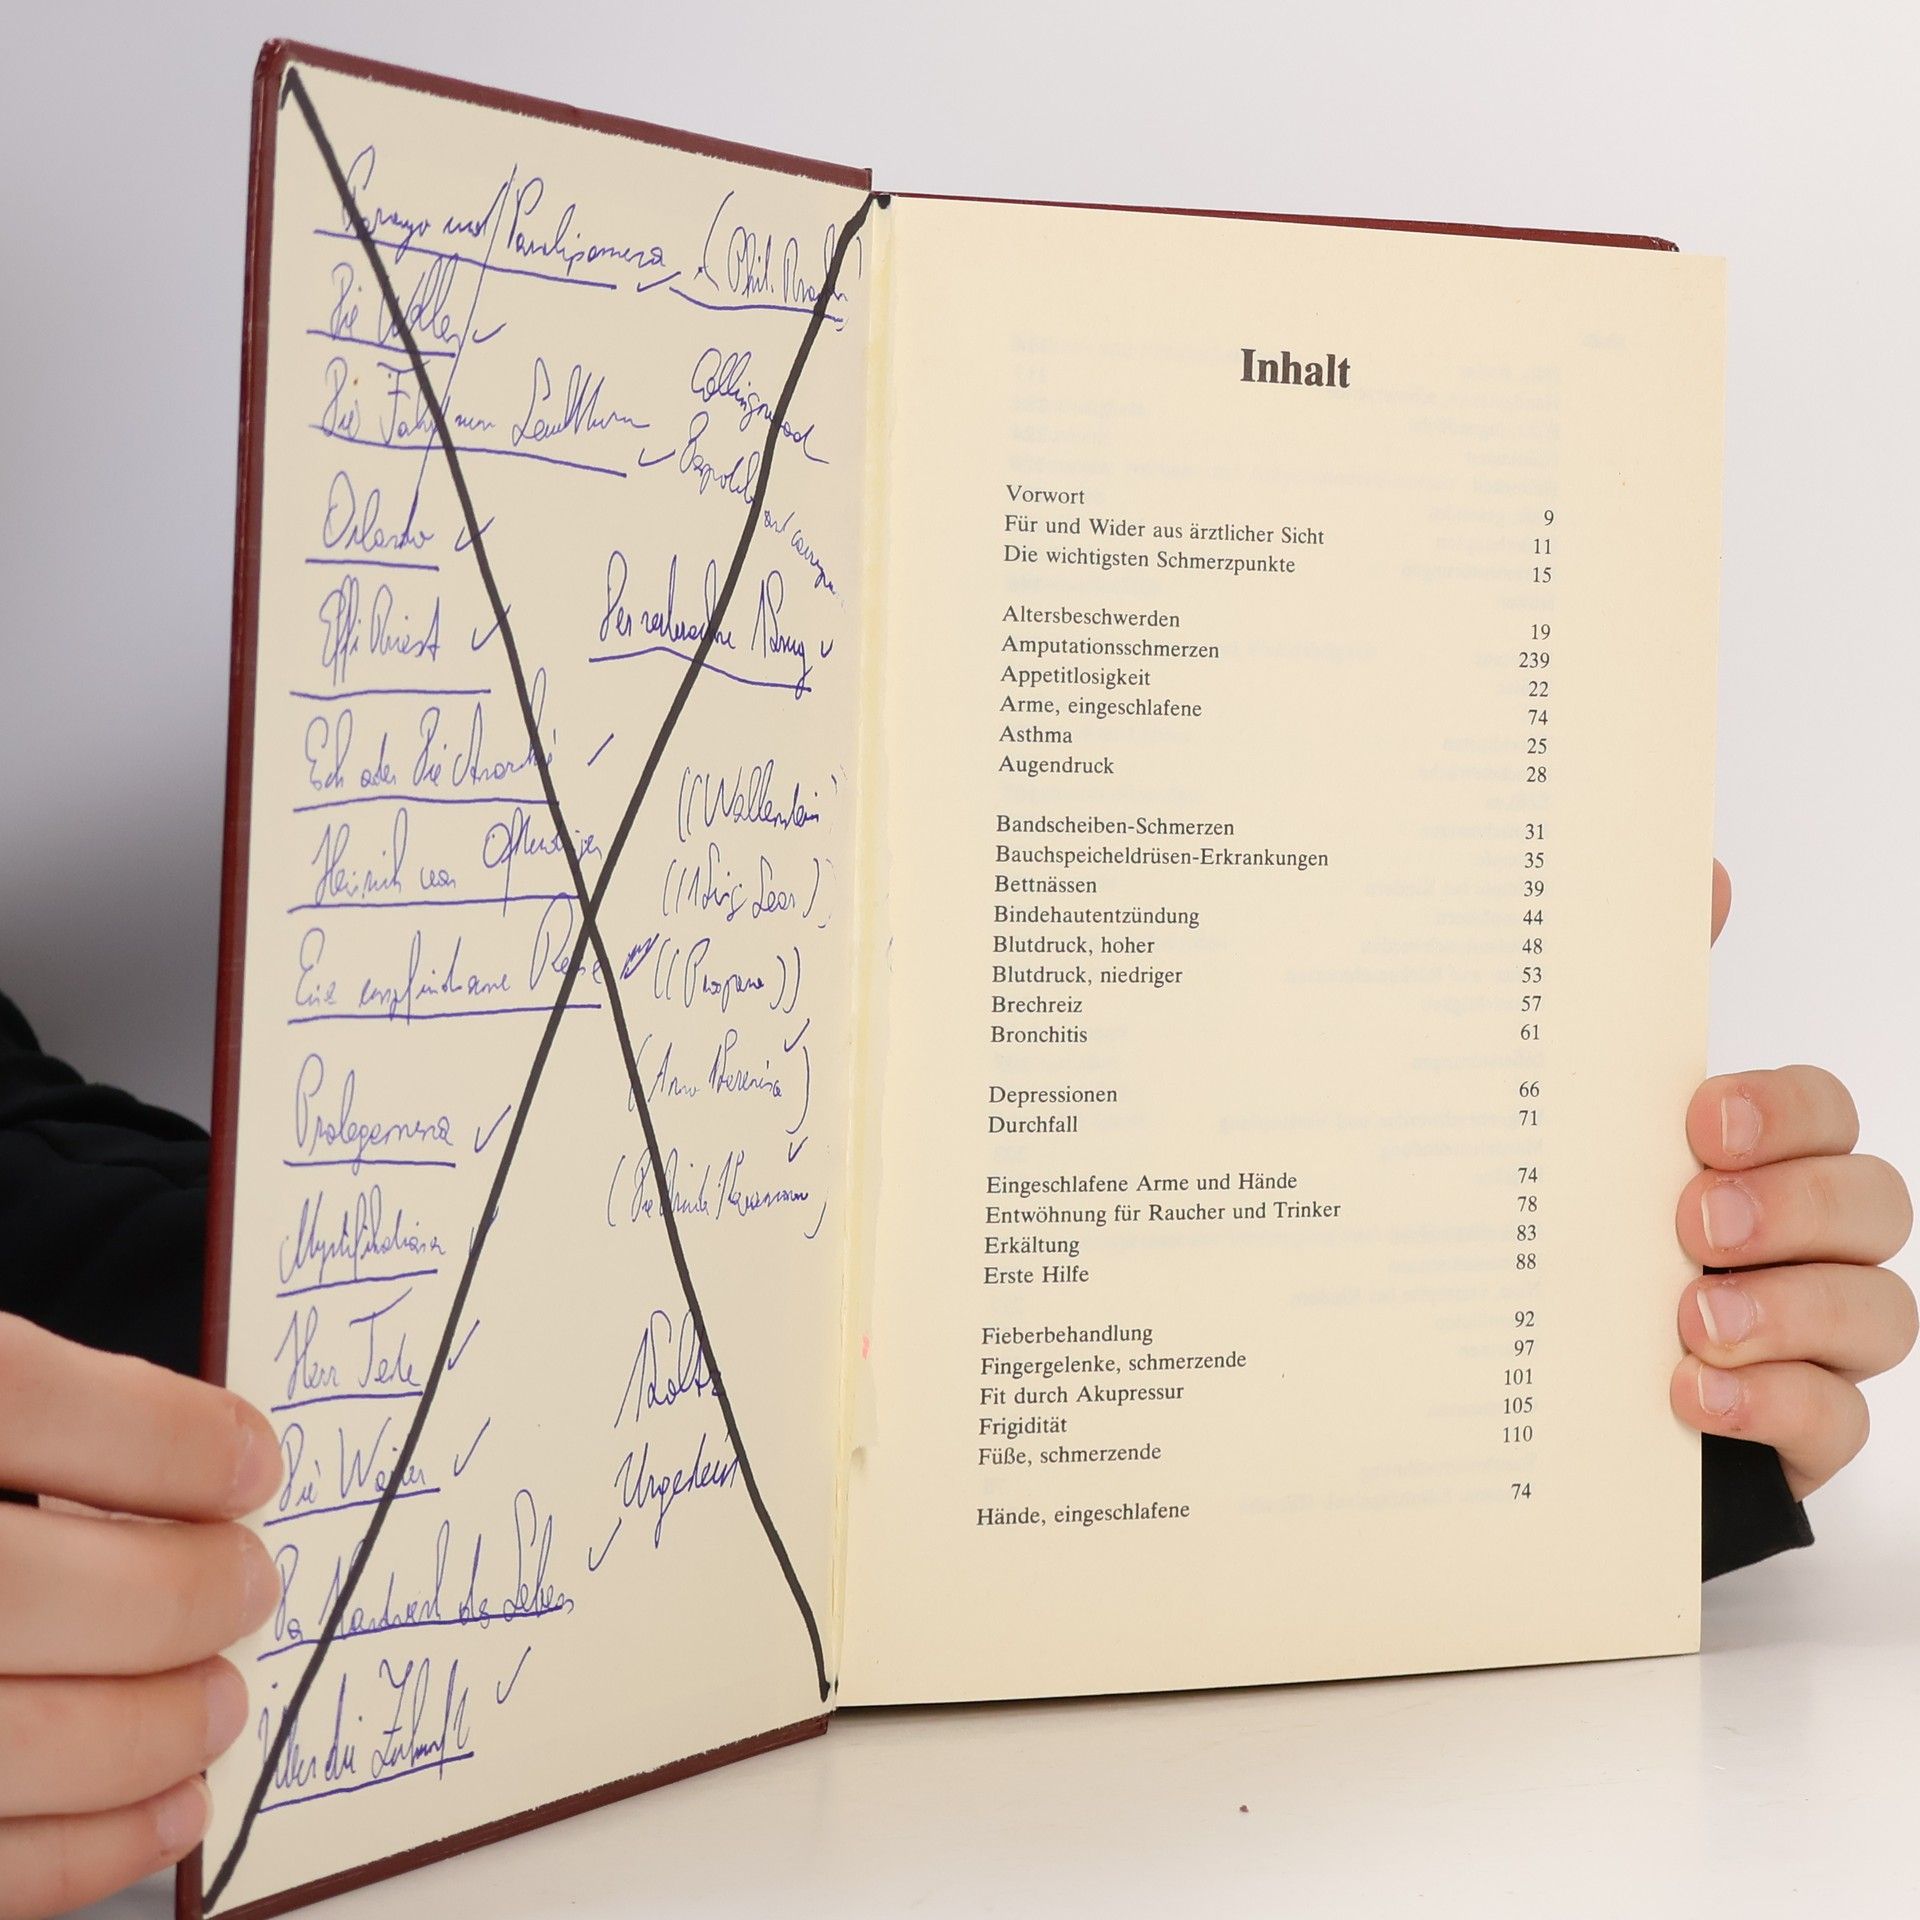 und Paralipomena (Phil.
Die Wellen
Die Fahrt zum Leuchtturm
Orlando
Effi Briest
Esch oder Die Anarchie
Heinrich von Ofterdingen
Eine empfindsame Reise
Prolegomena
Herr Teste
Die Wellen
Das Handwerk des Lebens
Über die Zukunft
Collingwood
Der zerbrochne Krug
((Wallenstein
((King Lear)
(Anna Karenina)
(Die Brüder Karamasow)
Urgestein
Inhalt
Vorwort 9
Für und Wider aus ärztlicher Sicht 11
Die wichtigsten Schmerzpunkte 15
Altersbeschwerden 19
Amputationsschmerzen 239
Appetitlosigkeit 22
Arme, eingeschlafene 74
Asthma 25
Augendruck 28
Bandscheiben-Schmerzen 31
Bauchspeicheldrüsen-Erkrankungen 35
Bettnässen 39
Bindehautentzündung 44
Blutdruck, hoher 48
Blutdruck, niedriger 53
Brechreiz 57
Bronchitis 61
Depressionen 66
Durchfall 71
Eingeschlafene Arme und Hände 74
Entwöhnung für Raucher und Trinker 78
Erkältung 83
Erste Hilfe 88
Fieberbehandlung 92
Fingergelenke, schmerzende 97
Fit durch Akupressur 101
Frigidität 105
Füße, schmerzende 110
Hände, eingeschlafene 74